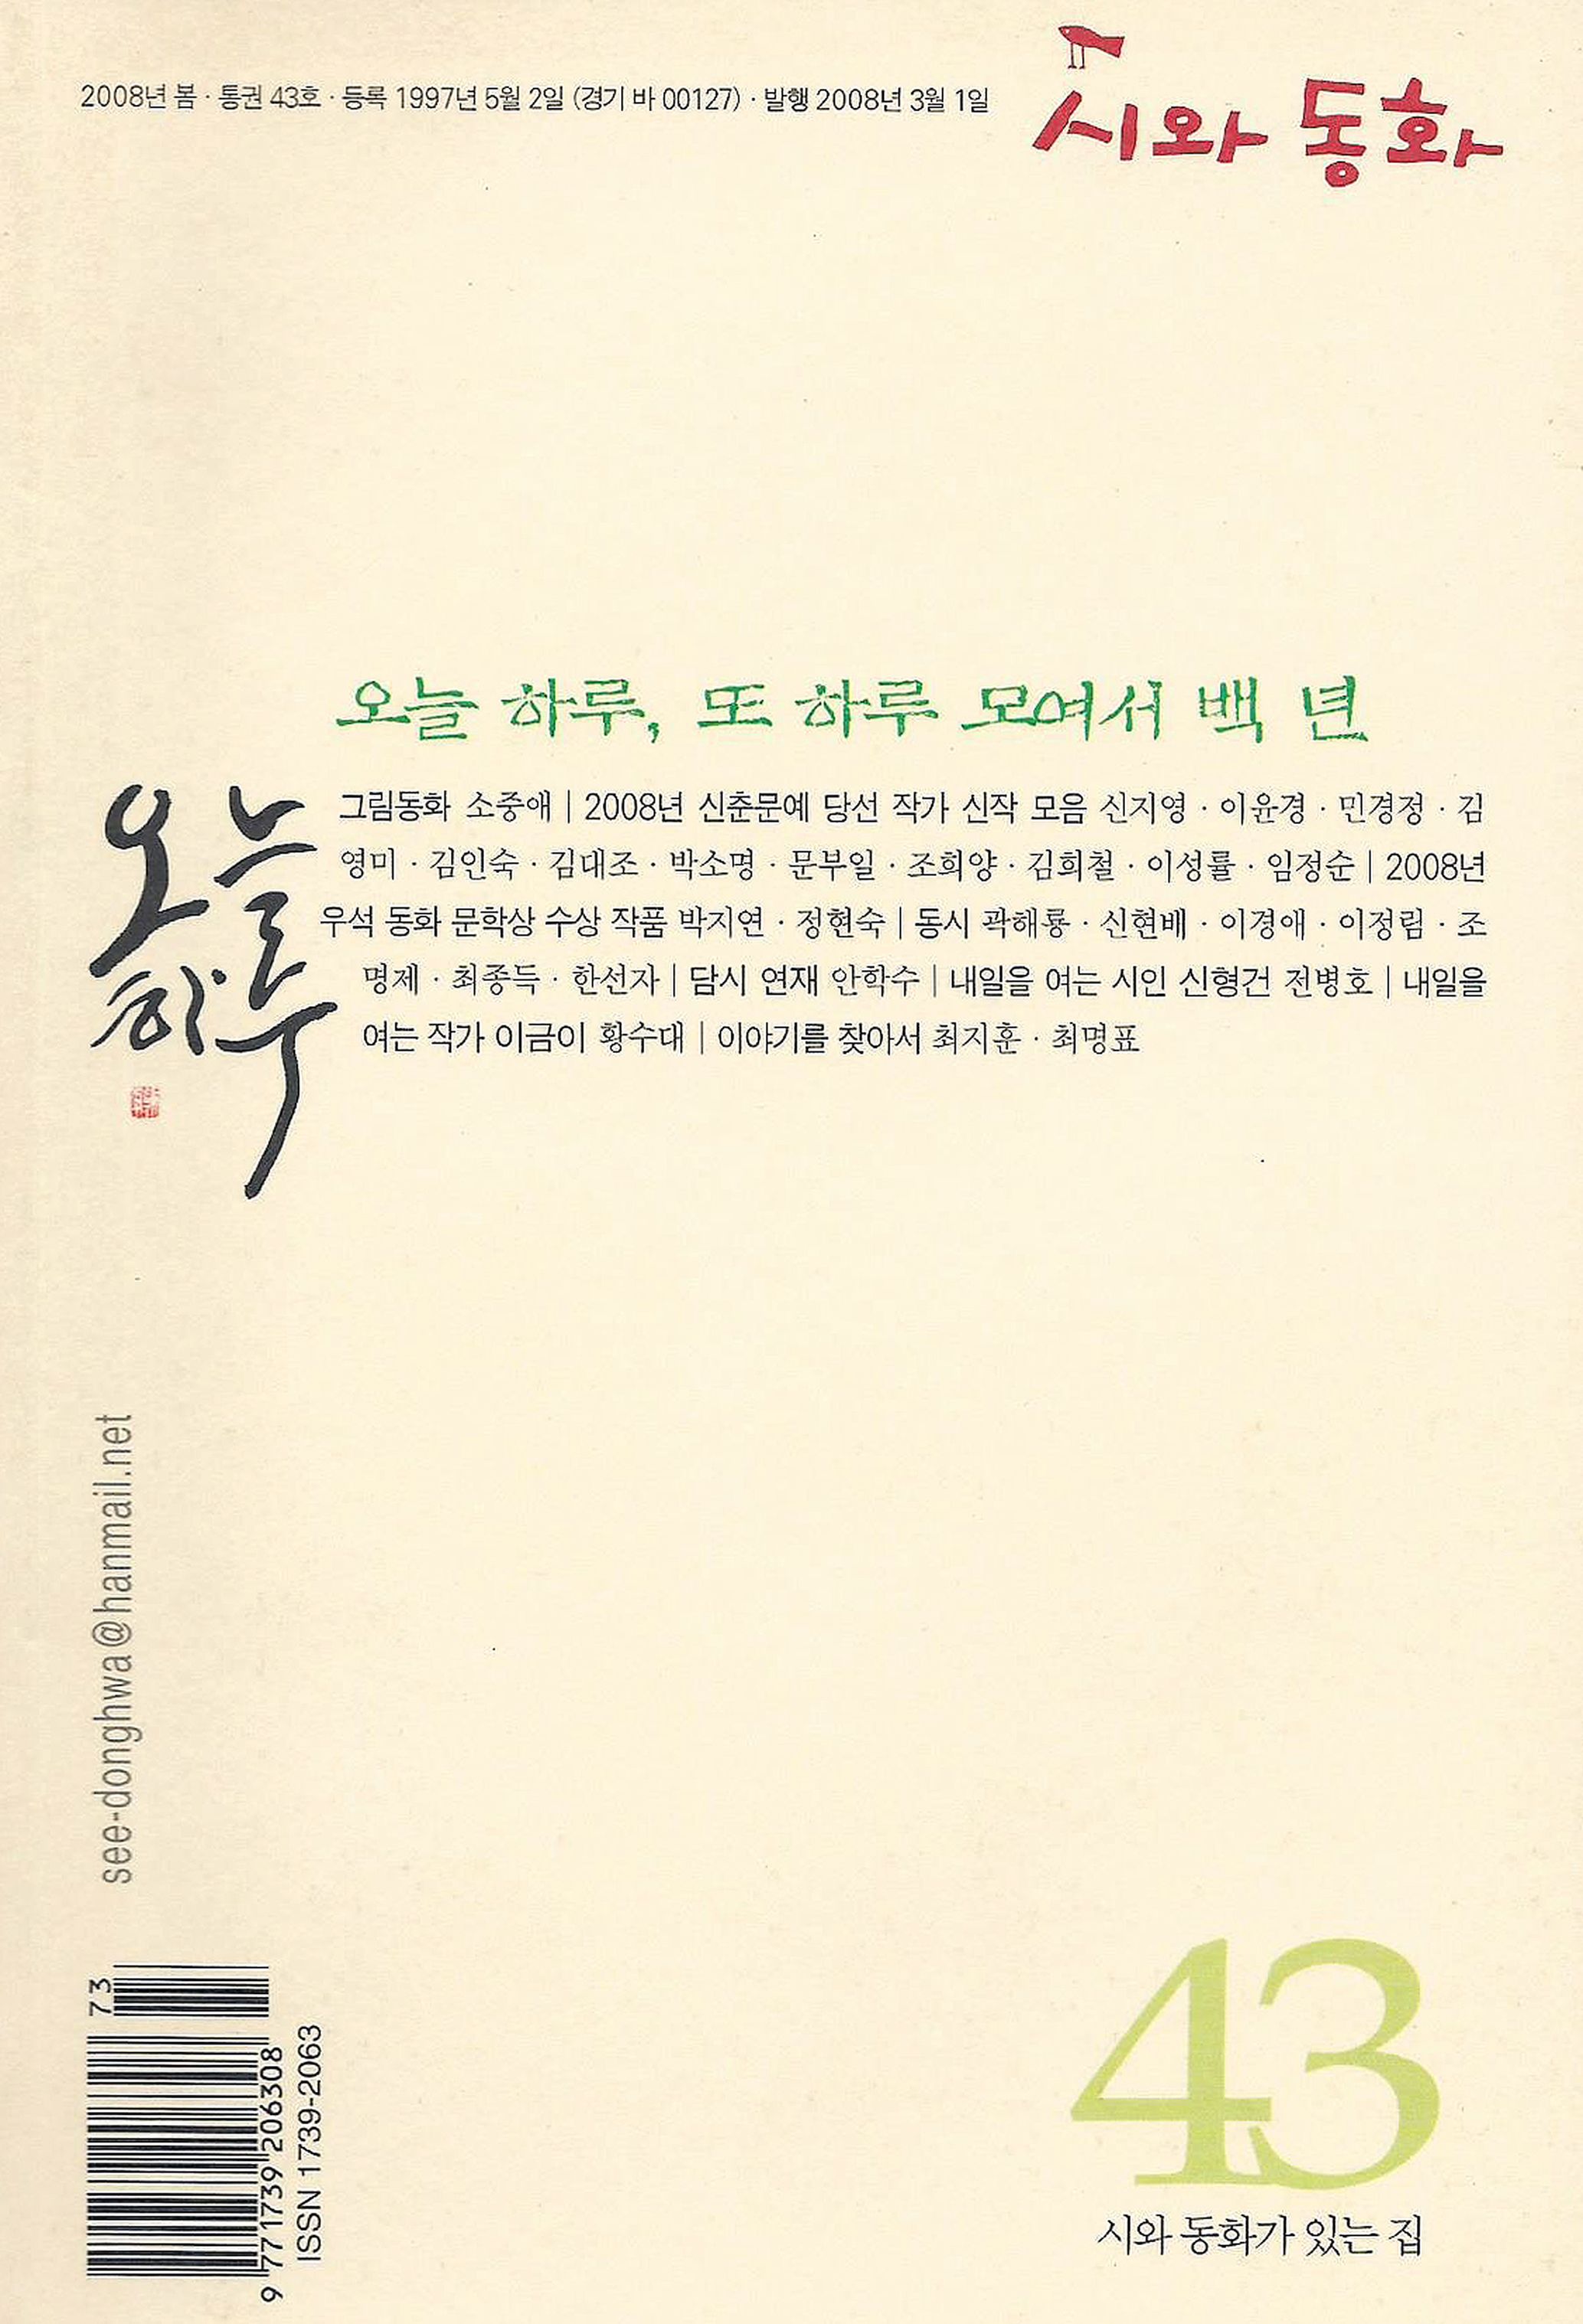 2008년 봄 · 통권 43호 · 등록 1997년 5월 2일 (경기 바 00127) · 발행 2008년 3월 1일
시와 동화
오늘 하루, 또 하루 모여서 백 년
오늘
하루
그림동화 소중애 | 2008년 신춘문예 당선 작가 신작 모음 신지영 · 이윤경 · 민경정 · 김
영미 · 김인숙 · 김대조 · 박소명 · 문부일 · 조희양 · 김희철 · 이성률 · 임정순 | 2008년
우석 동화 문학상 수상 작품 박지연 · 정현숙 | 동시 곽해룡 · 신현배 · 이경애 · 이정림 · 조
명제 · 최종득 · 한선자 | 담시 연재 안학수 | 내일을 여는 시인 신형건 전병호 | 내일을
여는 작가 이금이 황수대 | 이야기를 찾아서 최지훈 · 최명표
see-donghwa@hanmail.net
73
9 771739 206308
ISSN 1739-2063
43
시와 동화가 있는 집